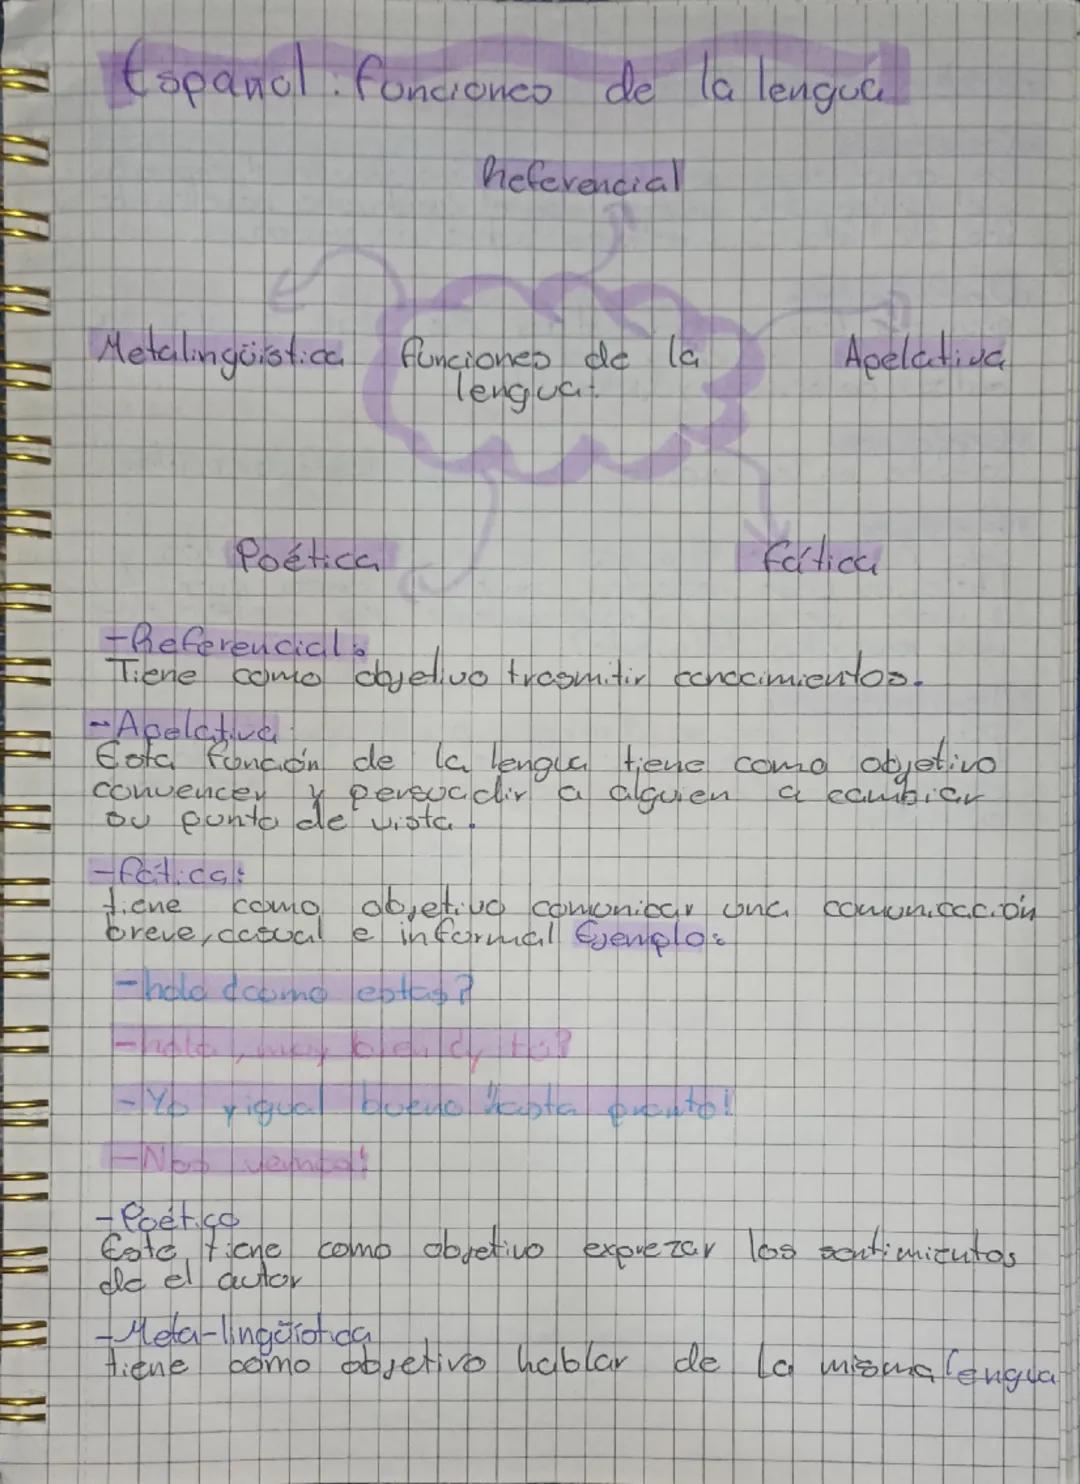 Español: funciones de la lengua
Referencial
Metalingüística
funciones de la
lengua:
Apelativa
Poética
Fática
-Referencial:
Tiene como objetivo trasmitir conocimientos.
-Apelativa
Esta función de la lengua tiene como objetivo
convencer y persuadir a alguien a cambiar
su punto de vista.
-Fática:
tiene como objetivo comunicar una comunicación
breve, casual e informal Ejemplo:
-hola ¿como estas?
-hola, muy bien ¿y tú?
-Yo igual bueno ¡hasta pronto!
-Nos vemos!
-Poético
Este tiene como objetivo exprezar los sentimientos
de el autor
-Meta-lingüística
tiene como objetivo hablar de la misma lengua